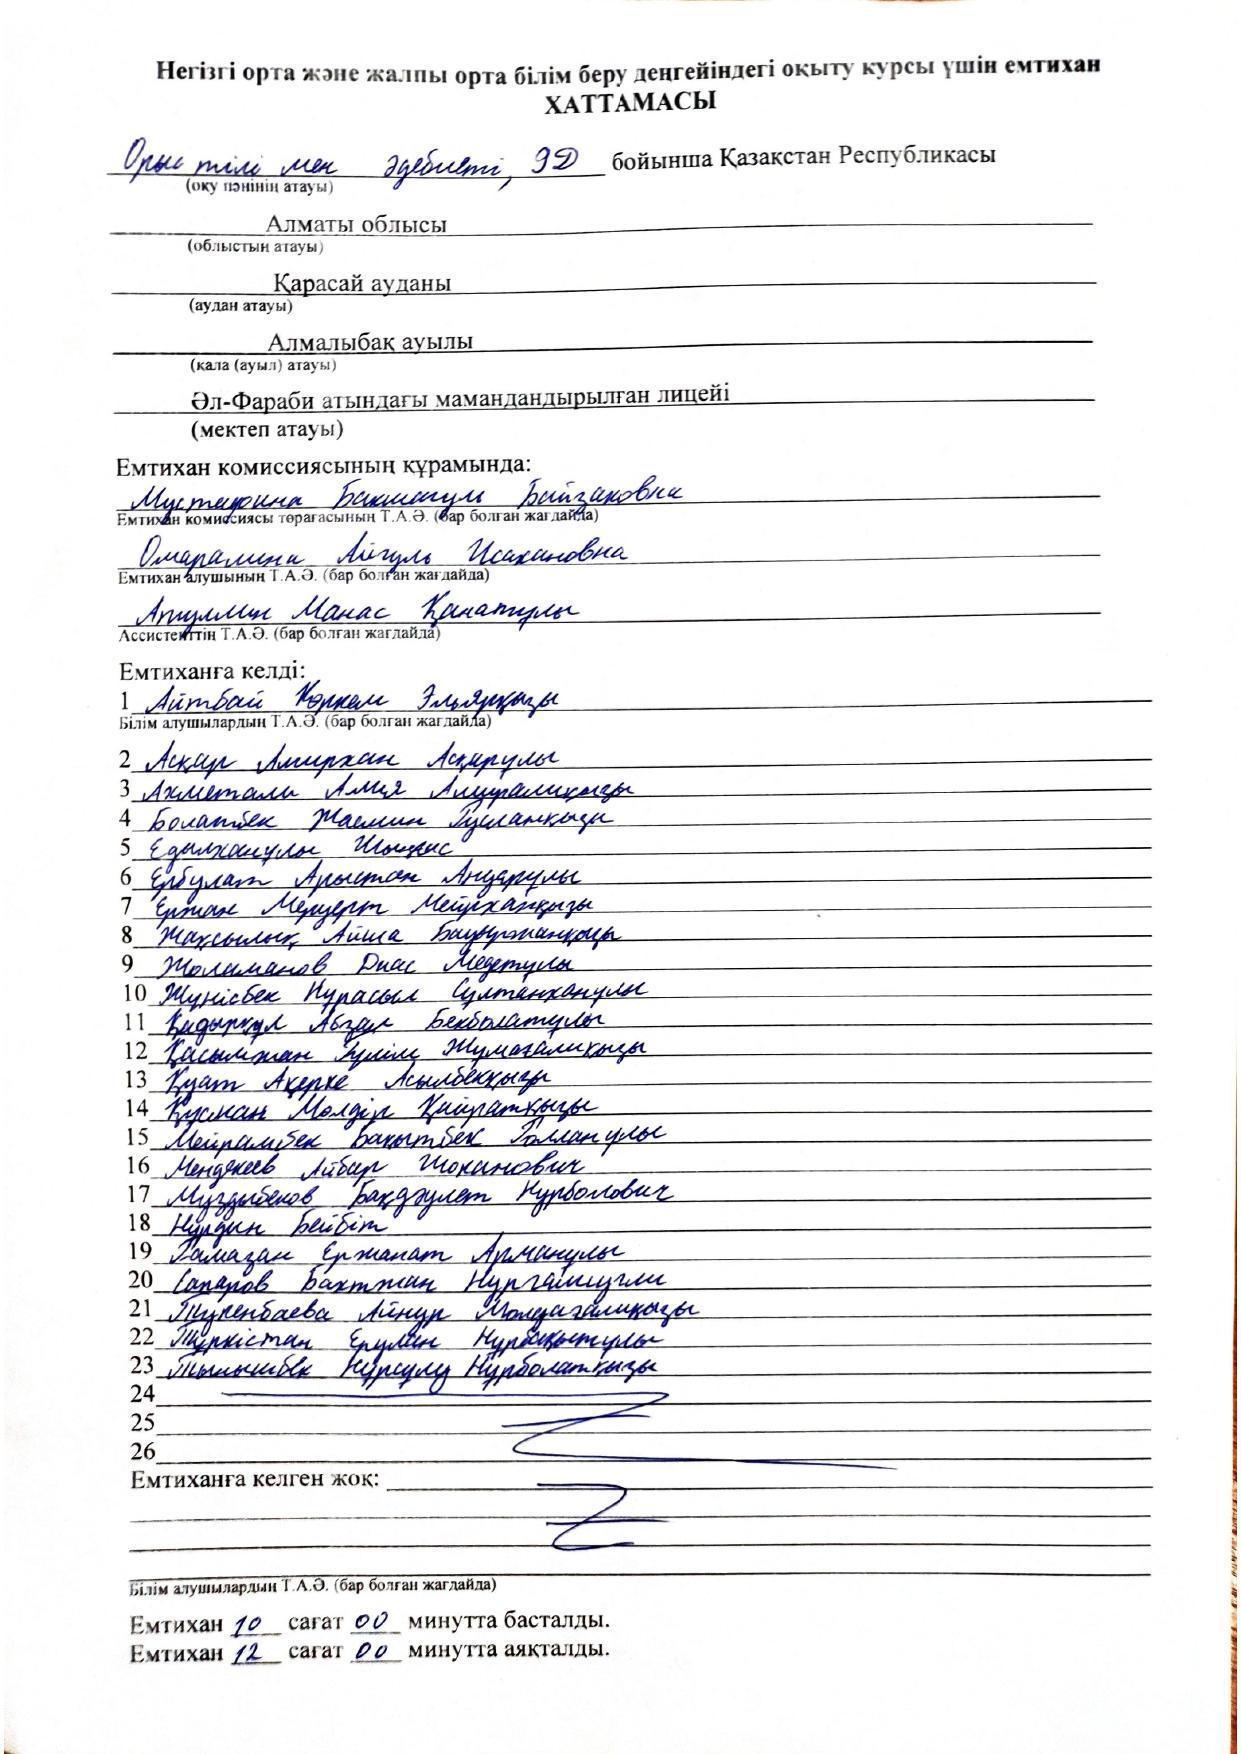 Негізгі орта және жалпы орта білім беру деңгейіндегі оқыту курсы үшін емтихан
ХАТТАМАСЫ
Орыс тілі мен әдебиеті, 9Д бойынша Қазақстан Республикасы
(оқу пәнінің атауы)
Алматы облысы
(облыстың атауы)
Қарасай ауданы
(аудан атауы)
Алмалыбақ ауылы
(қала (ауыл) атауы)
Әл-Фараби атындағы мамандандырылған лицейі
(мектеп атауы)
Емтихан комиссиясының құрамында:
Мустафина Бакшагуль Байзаковна
Емтихан комиссиясы төрағасының Т.А.Ә. (бар болған жағдайда)
Омаралина Айгуль Исахановна
Емтихан алушының Т.А.Ә. (бар болған жағдайда)
Манас Қанатұлы
Ассистенттің Т.А.Ә. (бар болған жағдайда)
Емтиханға келді:
1 Айтбай Көркем Эльярқызы
Білім алушылардың Т.А.Ә. (бар болған жағдайда)
2 Асқар Амирхан Асқарұлы
3 Ахметали Амия
4 Болатбек Жасмин Русланқызы
5 Едилханұлы Шыңғыс
6 Ербулат Арыстан Аңсарұлы
7 Ержан Меруерт Мейрханқызы
8 Жақсылық Айша Бауыржанқызы
9 Жоламанов Диас Медетулы
10 Жүнісбек Нұрасыл Сұлтанханұлы
11 Қыдырқұл Абзал Бекболатұлы
12 Қасымжан Гүлім Жумағалиқызы
13 Қуат Ақерке Асылбекқызы
14 Құсман Мөлдір Қайратқызы
15 Мейрамбек Бақытбек Голланұлы
16 Мендекеев Айбар Шоканович
17 Мұздыбеков Бақдәулет Нұрболович
18 Нұрдин Бейбіт
19 Рамазан Ержанат Арманұлы
20 Сапаров Бахтжан
21 Түгенбаева Айнұр Молдағалиқызы
22 Түркістан Ерулан Нұрбақытұлы
23 Тынышбек Нұрсұлу Нұрболатқызы
24
25
26
Емтиханға келген жоқ:
Білім алушылардың Т.А.Ә. (бар болған жағдайда)
Емтихан 10 сағат 00 минутта басталды.
Емтихан 12 сағат 00 минутта аяқталды.